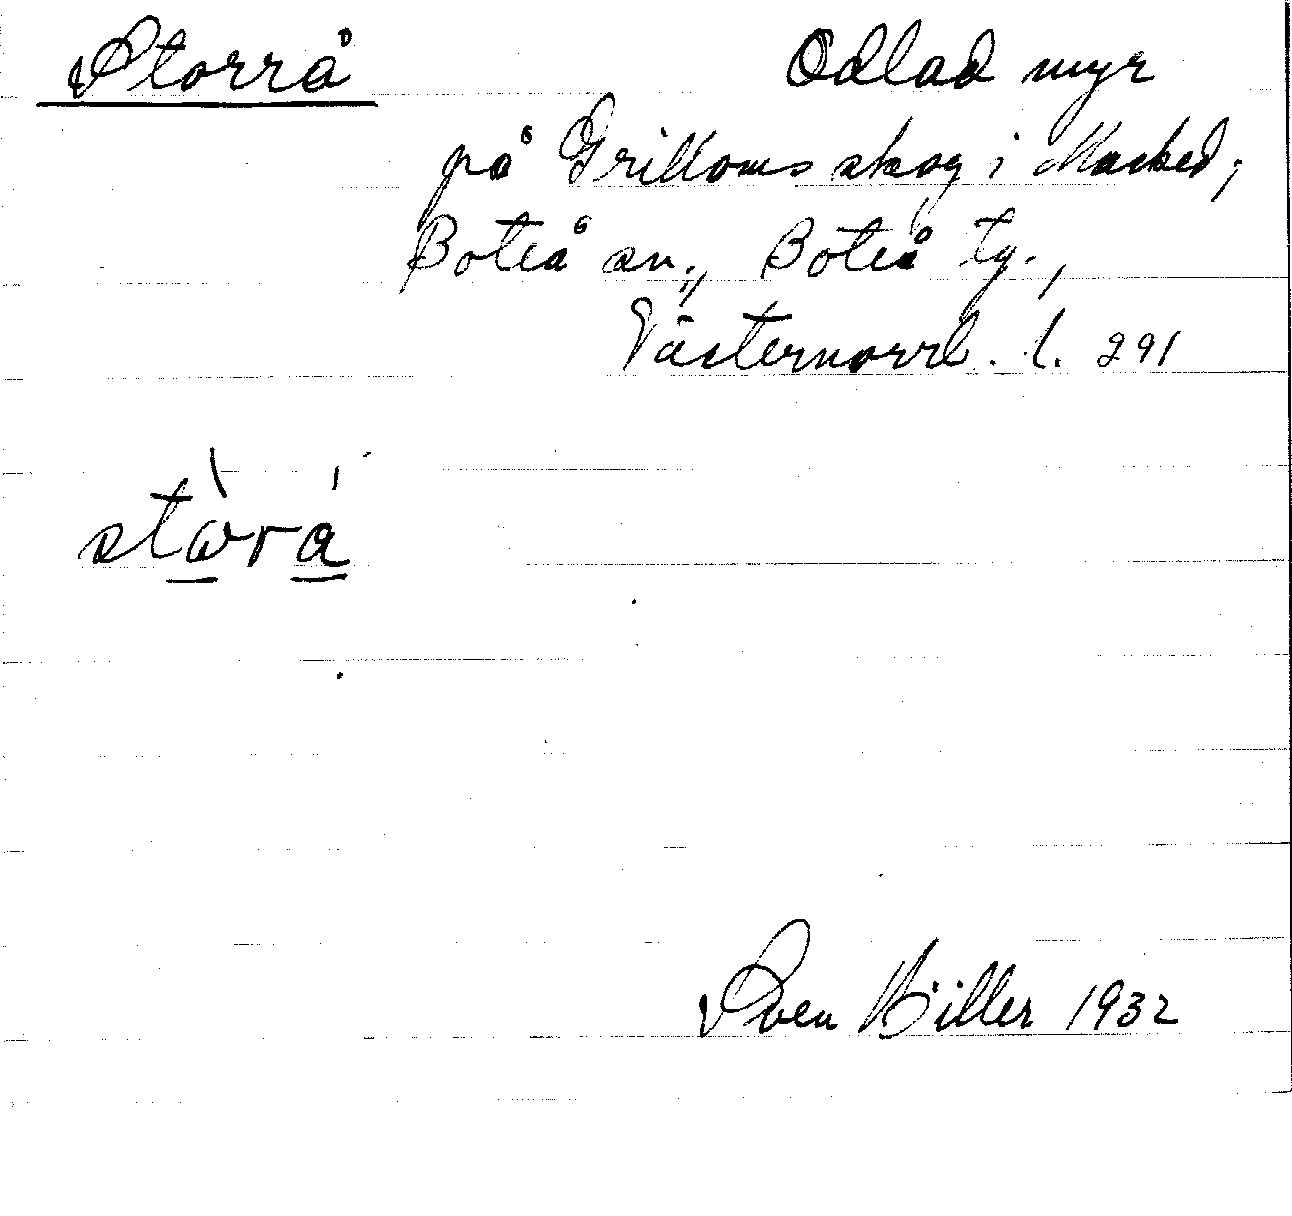 Storrå Odlad myr
på Grilloms skog i Marked;
Boteå sn., Boteå tg.,
Västernorrl. l. 291
stàrá
Sven Hiller 1932